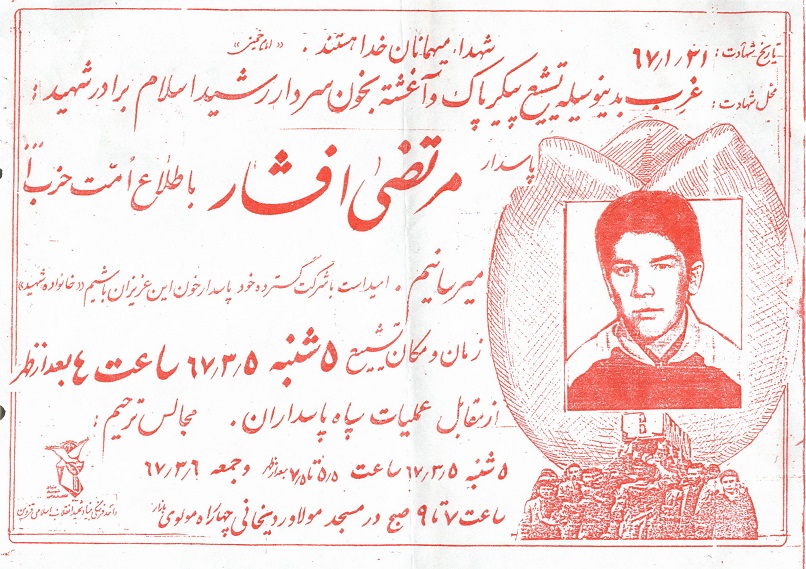 شهداء میهمانان خدا هستند . «امام خمینی»
تاریخ شهادت : ۶۷/۱/۳۱
محل شهادت : غرب
بدینوسیله تشییع پیکر پاک و آغشته بخون سردار رشید اسلام برادر شهید :
پاسدار مرتضی افشار باطلاع اُمّت حزب ا...
میرسانیم . امید است با شرکت گسترده خود پاسدار خون این عزیزان باشیم «خانواده شهید»
زمان و مکان تشییع ۵ شنبه ۶۷/۳/۵ ساعت ٤ بعد از ظهر
از مقابل عملیات سپاه پاسداران . مجالس ترحیم :
۵ شنبه ۶۷/۳/۵ ساعت ۵/۵ تا ۷/۵ بعد از ظهر و جمعه ۶۷/۳/۶
ساعت ۷ تا ۹ صبح در مسجد مولاوردیخانی چهارراه مولوی بازار
واحد فرهنگی بنیاد شهید انقلاب اسلامی قزوین